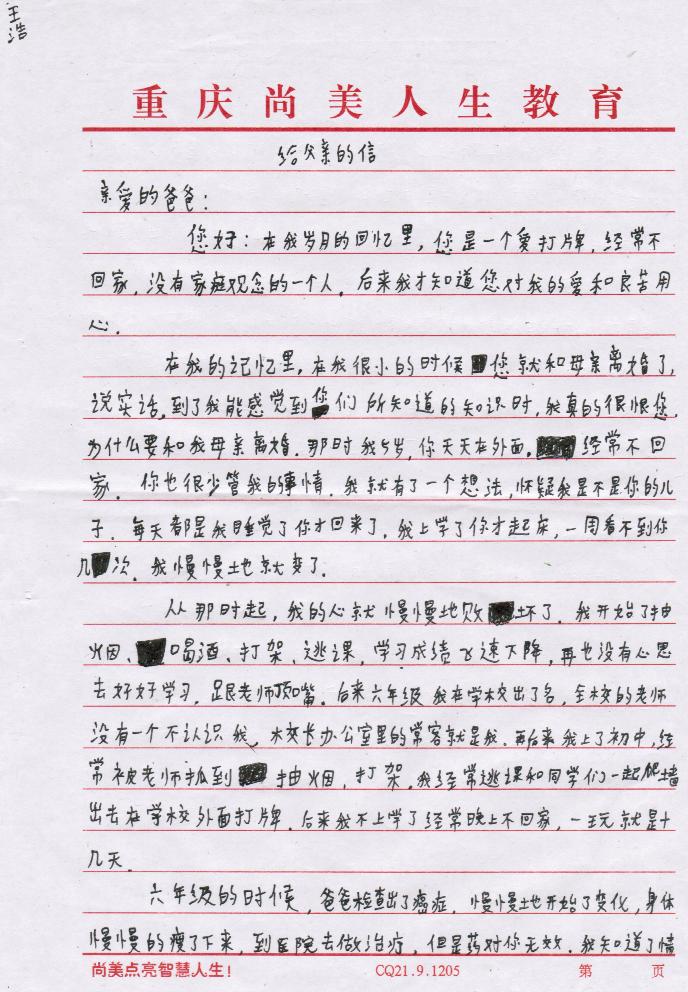 王浩
重庆尚美人生教育
给父亲的信
亲爱的爸爸：
您好：在我岁月的回忆里，您是一个爱打牌，经常不
回家，没有家庭观念的一个人。后来我才知道您对我的爱和良苦用
心。
在我的记忆里，在我很小的时候您就和母亲离婚了，
说实话，到了我能感觉到你们所知道的知识时，我真的很恨您，
为什么要和我母亲离婚。那时我5岁，你天天在外面。经常不回
家。你也很少管我的事情。我就有了一个想法，怀疑我是不是你的儿
子。每天都是我睡觉了你才回来了，我上学了你才起床，一周看不到你
几次。我慢慢地就变了。
从那时起，我的心就慢慢地败坏了。我开始了抽
烟、喝酒、打架、逃课，学习成绩飞速下降，再也没有心思
去好好学习，跟老师顶嘴。后来六年级我在学校出了名，全校的老师
没有一个不认识我，校长办公室里的常客就是我。再后来我上了初中，经
常被老师抓到抽烟，打架。我经常逃课和同学们一起爬墙
出去在学校外面打牌。后来我不上学了经常晚上不回家，一玩就是十
几天。
六年级的时候，爸爸检查出了癌症，慢慢地开始了变化，身体
慢慢的瘦了下来，到医院去做治疗，但是药对你无效。我知道了情
尚美点亮智慧人生！ CQ21.9.1205 第 页